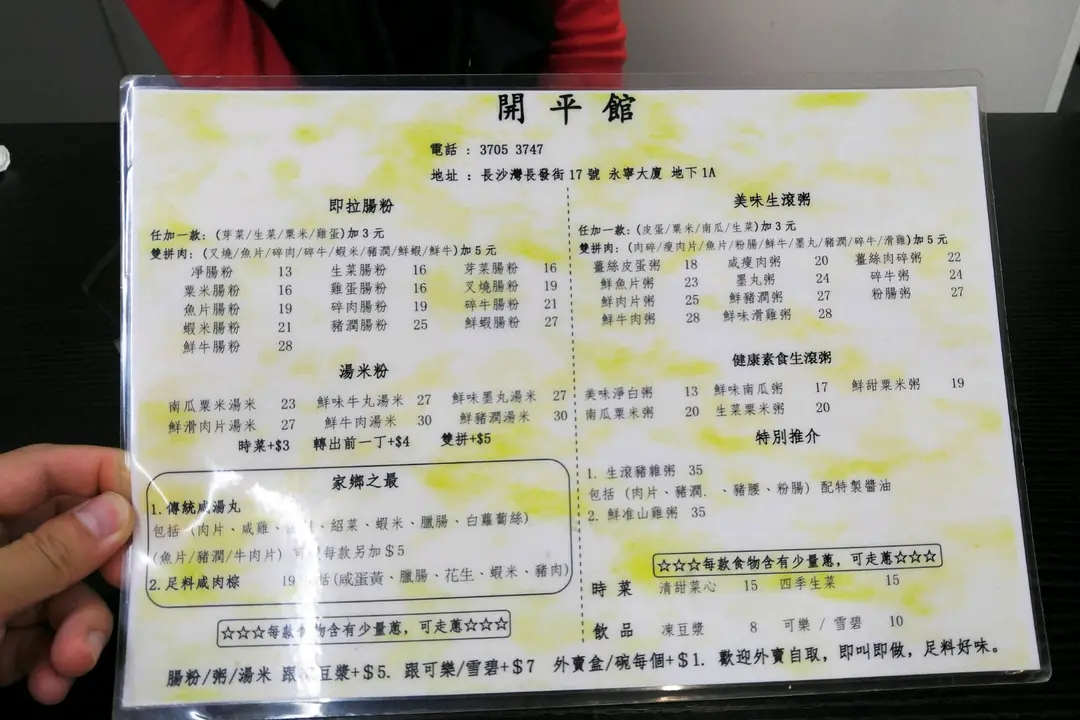 開平館
電話：3705 3747
地址：長沙灣長發街17號 永寧大廈 地下1A
即拉腸粉
任加一款：(芽菜/生菜/粟米/雞蛋)加3元
雙拼肉：(叉燒/魚片/碎肉/碎牛/蝦米/豬潤/鮮蝦/鮮牛)加5元
淨腸粉 13 生菜腸粉 16 芽菜腸粉 16
粟米腸粉 16 雞蛋腸粉 16 叉燒腸粉 19
魚片腸粉 19 碎肉腸粉 19 碎牛腸粉 21
蝦米腸粉 21 豬潤腸粉 25 鮮蝦腸粉 27
鮮牛腸粉 28
湯米粉
南瓜粟米湯米 23 鮮味牛丸湯米 27 鮮味墨丸湯米 27
鮮滑肉片湯米 27 鮮牛肉湯米 30 鮮豬潤湯米 30
時菜+$3 轉出前一丁+$4 雙拼+$5
家鄉之最
1. 傳統咸湯丸
包括 (肉片、咸雞、紹菜、蝦米、臘腸、白蘿蔔絲)
(魚片/豬潤/牛肉片) 可 每款另加$5
2. 足料咸肉棕 19 括(咸蛋黃、臘腸、花生、蝦米、豬肉)
☆☆☆每款食物含有少量蔥，可走蔥☆☆☆
美味生滾粥
任加一款：(皮蛋/粟米/南瓜/生菜)加3元
雙拼肉：(肉碎/瘦肉片/魚片/粉腸/鮮牛/墨丸/豬潤/碎牛/滑雞)加5元
薑絲皮蛋粥 18 咸瘦肉粥 20 薑絲肉碎粥 22
鮮魚片粥 23 墨丸粥 24 碎牛粥 24
鮮肉片粥 25 鮮豬潤粥 27 粉腸粥 27
鮮牛肉粥 28 鮮味滑雞粥 28
健康素食生滾粥
美味淨白粥 13 鮮味南瓜粥 17 鮮甜粟米粥 19
南瓜粟米粥 20 生菜粟米粥 20
特別推介
1. 生滾豬雜粥 35
包括 (肉片、豬潤.、豬腰、粉腸) 配特製醬油
2. 鮮准山雞粥 35
☆☆☆每款食物含有少量蔥，可走蔥☆☆☆
時菜 清甜菜心 15 四季生菜 15
飲品 凍豆漿 8 可樂 / 雪碧 10
腸粉/粥/湯米 跟 豆漿+$5. 跟可樂/雪碧+$7 外賣盒/碗每個+$1. 歡迎外賣自取，即叫即做，足料好味。